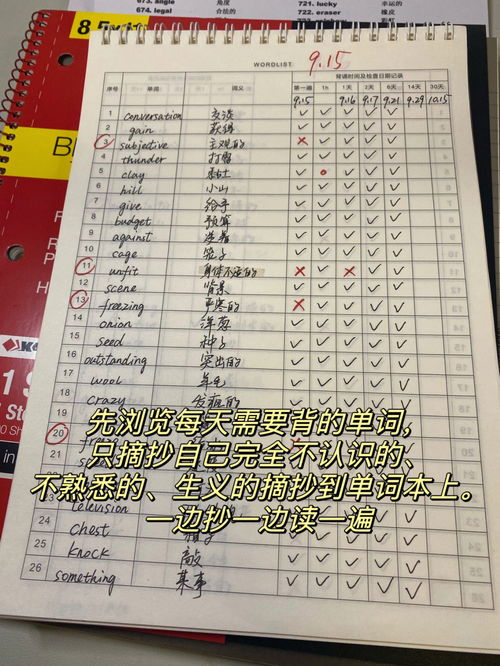 673. angle 角度
674. legal 合法的
721. lucky 幸运的
722. eraser 橡皮
8.5
WORDLIST: 9.15
序号 单词 词义 背诵时间及检查日期记录
第一遍 1h 1天 2天 6天 14天 30天
9.15 9.16 9.17 9.21 9.29 10.15
1 conversation 交谈
2 gain 获得
3 subjective 主观的
4 thunder 打雷
5 clay 黏土
6 hill 小山
7 give 给予
8 budget 预算
9 against 逆着
10 cage 笼子
11 unfit 身体不适的
12 scene 背景
13 freezing 严寒的
14 onion 洋葱
15 seed 种子
16 outstanding 突出的
17 wool 羊毛
18 crazy 发疯的
先浏览每天需要背的单词,
20
只摘抄自己完全不认识的、
21
不熟悉的、生义的摘抄到单词本上。
television
一边抄一边读一遍
24 chest
25 knock 敲
26 something 某事